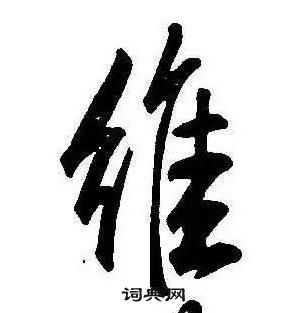 維
词典网